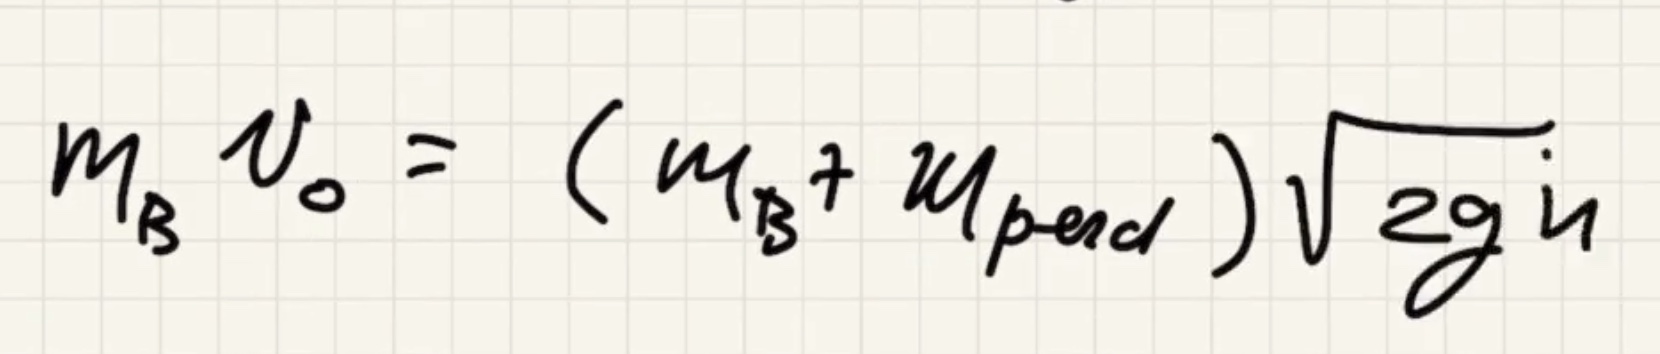 m_B v_0 = (m_B + m_pend) √2gh